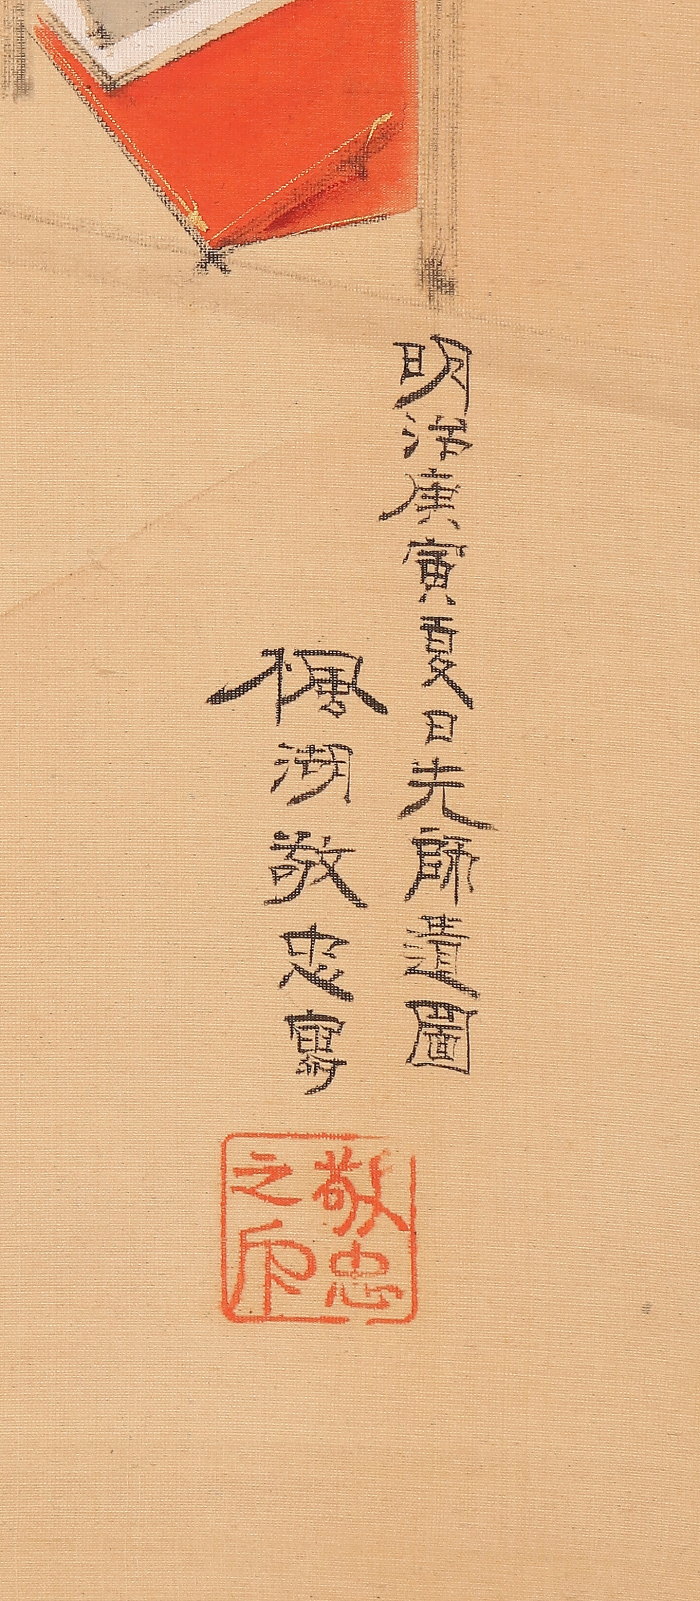 明治庚寅夏日先師遺圖
佩湖敬忠寫
敬忠
之印